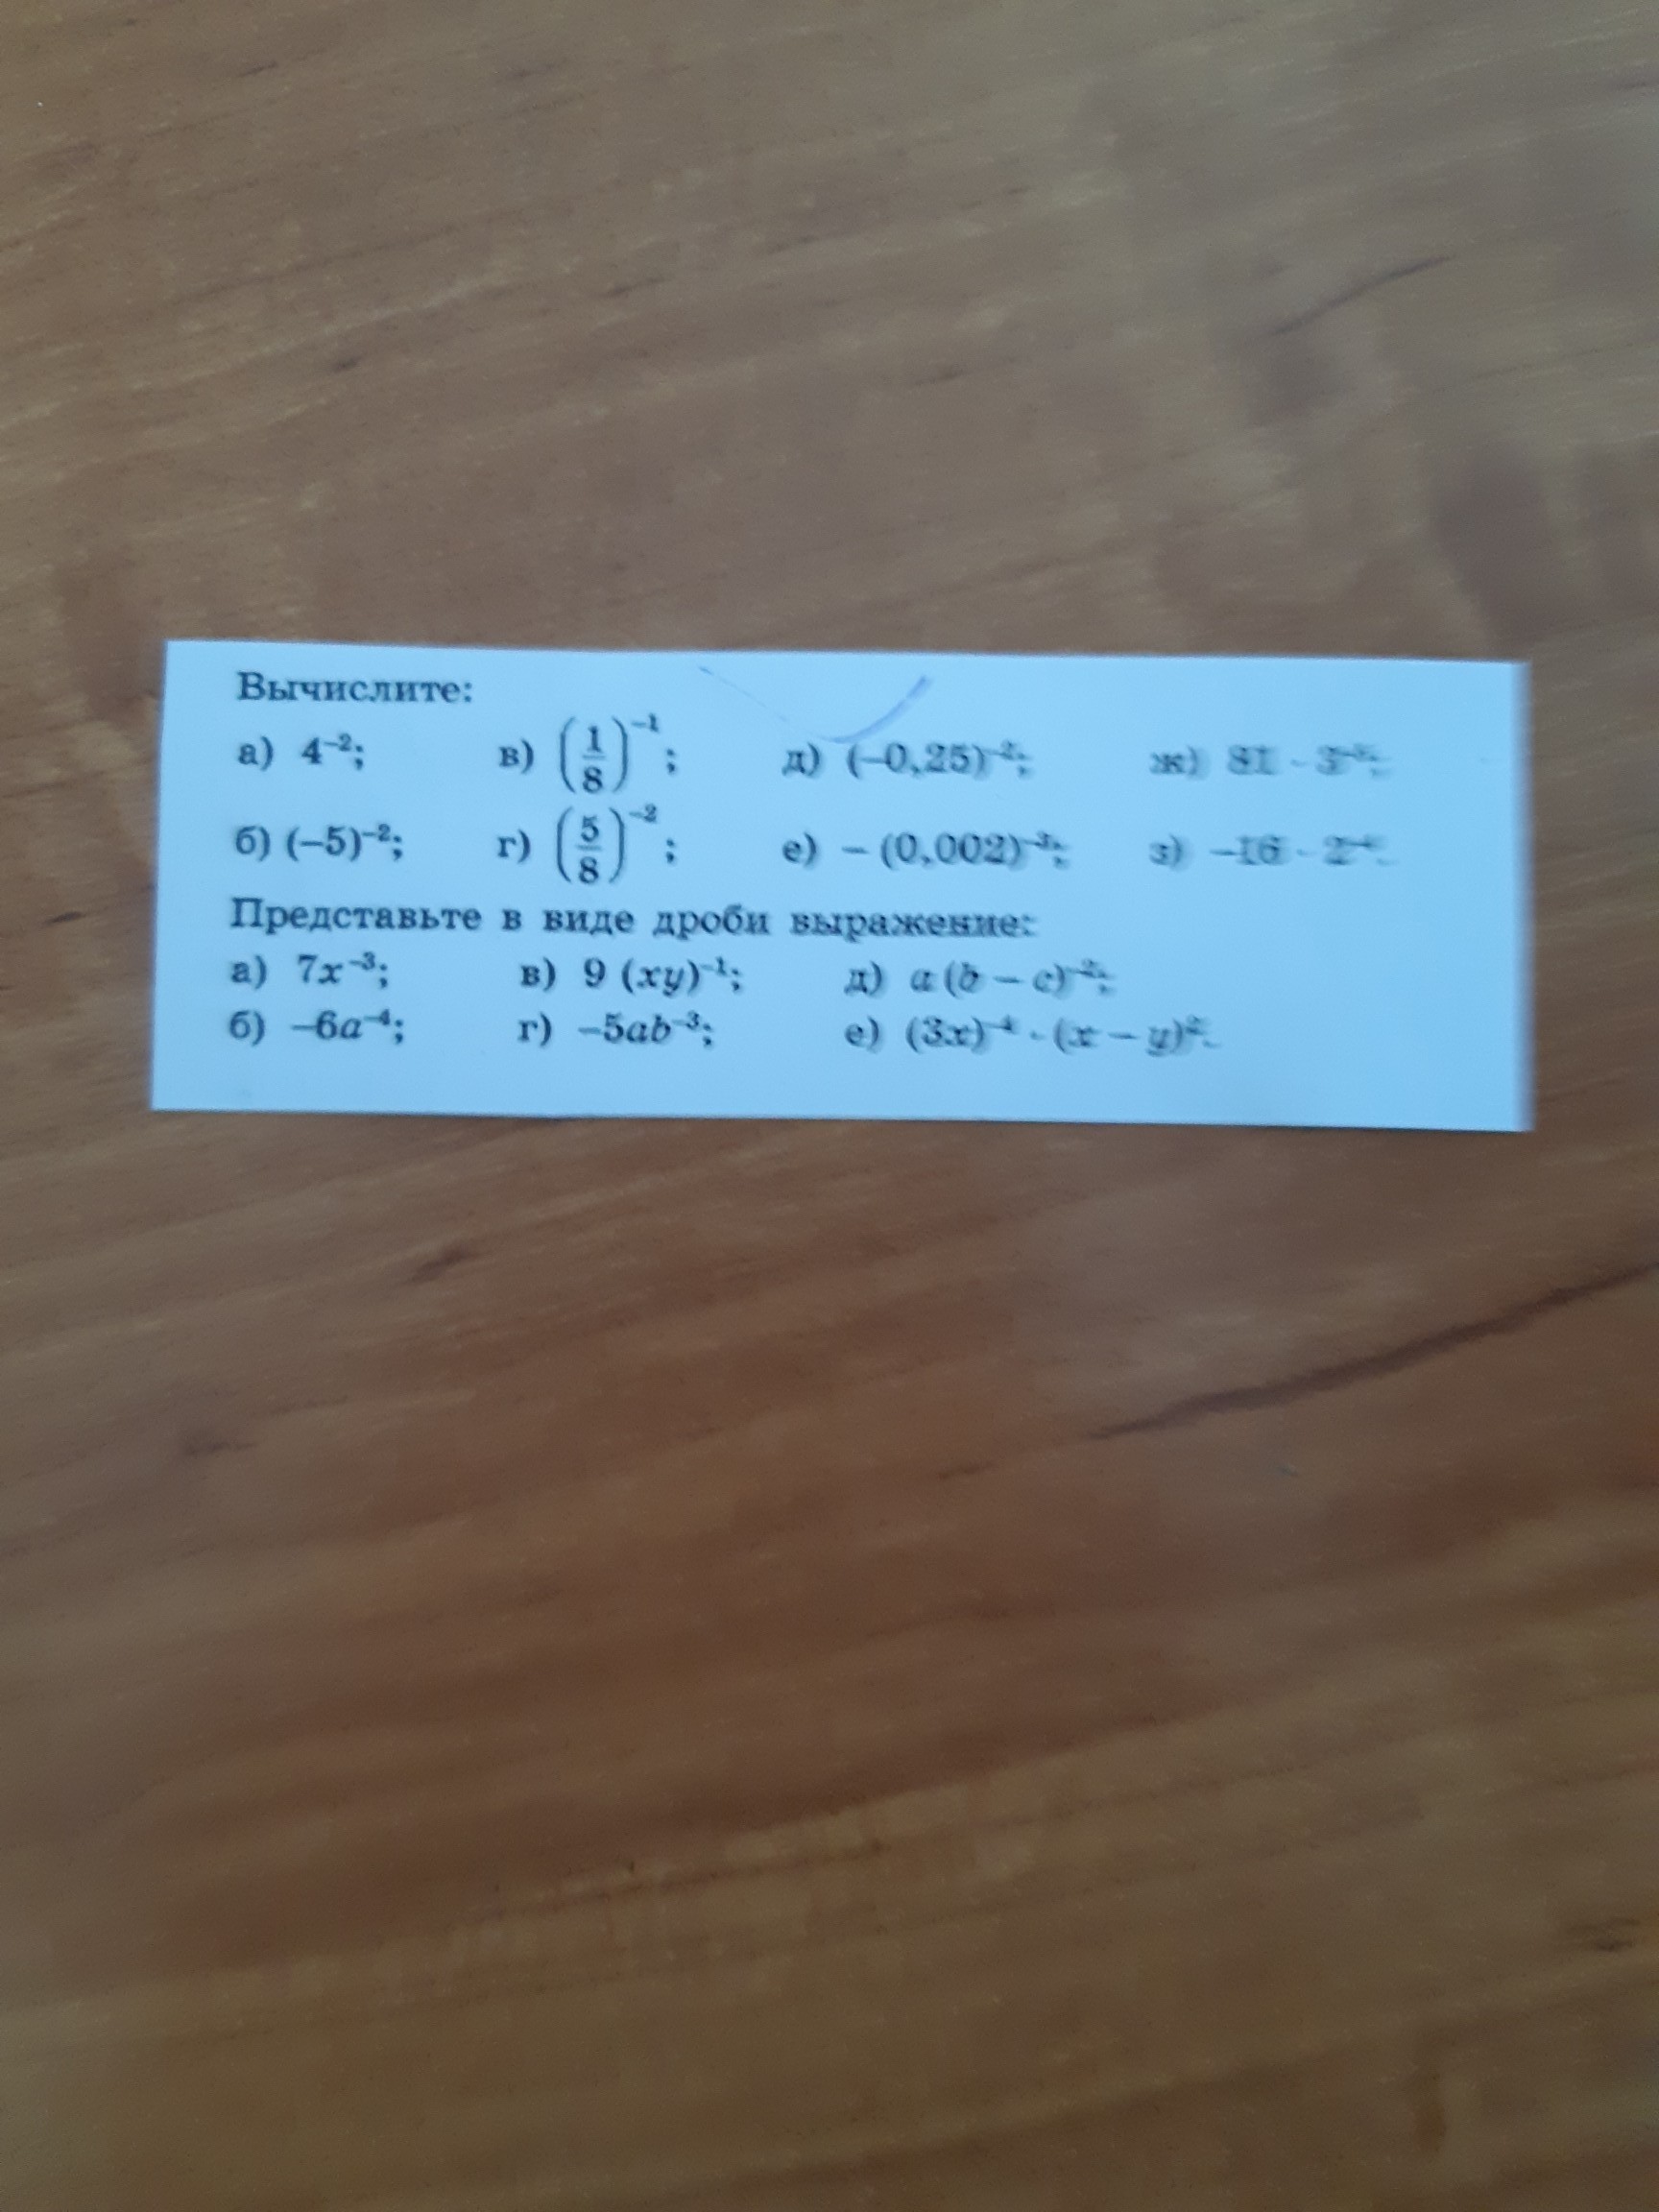 Вычислите:
а) 4⁻²; в) (1/8)⁻¹; д) (–0,25)⁻²; ж) 81 ·
б) (–5)⁻²; г) (5/8)⁻²; е) – (0,002)⁻³; з) –16 ·
Представьте в виде дроби выражение:
а) 7x⁻³; в) 9 (xy)⁻¹; д) a (b – c)⁻²;
б) –6a⁻⁴; г) –5ab⁻³; е) · (x – y)².